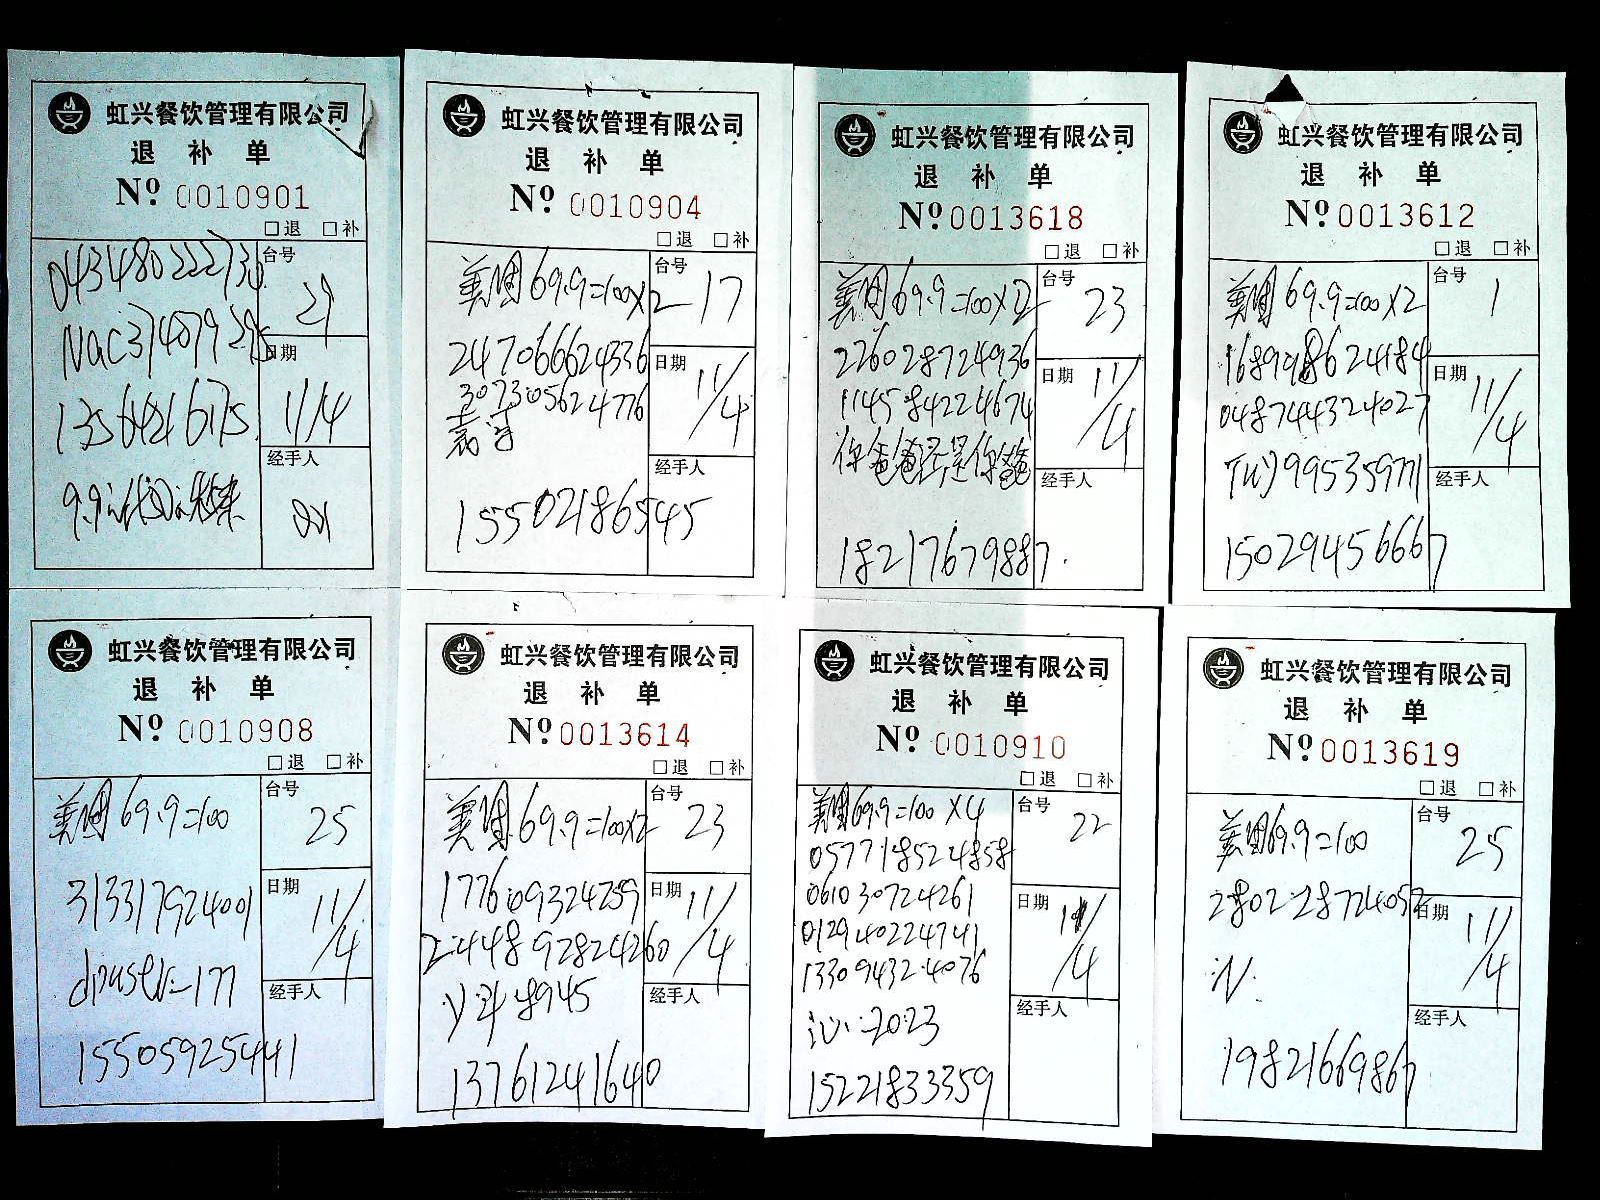 虹兴餐饮管理有限公司
退 补 单
Nº 0010901
□退 □补
043480222730
台号
29
日期
11/4
经手人
虹兴餐饮管理有限公司
退 补 单
Nº 0010904
□退 □补
美团 69.9=100×2
247066624336
307305624776
15502186545
台号
17
日期
11/4
经手人
虹兴餐饮管理有限公司
退 补 单
Nº 0013618
□退 □补
美团 69.9=100×2
226028724936
114584224674
你爸爸还是你爸爸
18217679887
台号
23
日期
11/4
经手人
虹兴餐饮管理有限公司
退 补 单
Nº 0013612
□退 □补
美团 69.9=100×2
168998624184
048744324027
TUY995359771
15029456667
台号
1
日期
11/4
经手人
虹兴餐饮管理有限公司
退 补 单
Nº 0010908
□退 □补
美团 69.9=100
313317924001
15505925441
台号
25
日期
11/4
经手人
虹兴餐饮管理有限公司
退 补 单
Nº 0013614
□退 □补
美团 69.9=100×2
177609324259
244892824260
8945
13761241640
台号
23
日期
11/4
经手人
虹兴餐饮管理有限公司
退 补 单
Nº 0010910
□退 □补
美团 69.9=100 ×4
057718524858
061030724261
012940224741
133094324076
2023
15221833359
台号
22
日期
11/4
经手人
虹兴餐饮管理有限公司
退 补 单
Nº 0013619
□退 □补
美团69.9=100
280228724052
19821669867
台号
25
日期
11/4
经手人